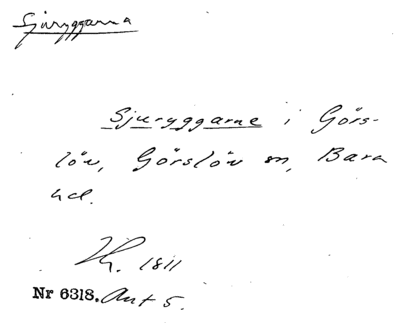 Sjuryggarna
Sjuryggarne i Görs-
löv, Görslöv sn, Bara
hd.
Kr. 1811
Nr 6318. Akt 5.